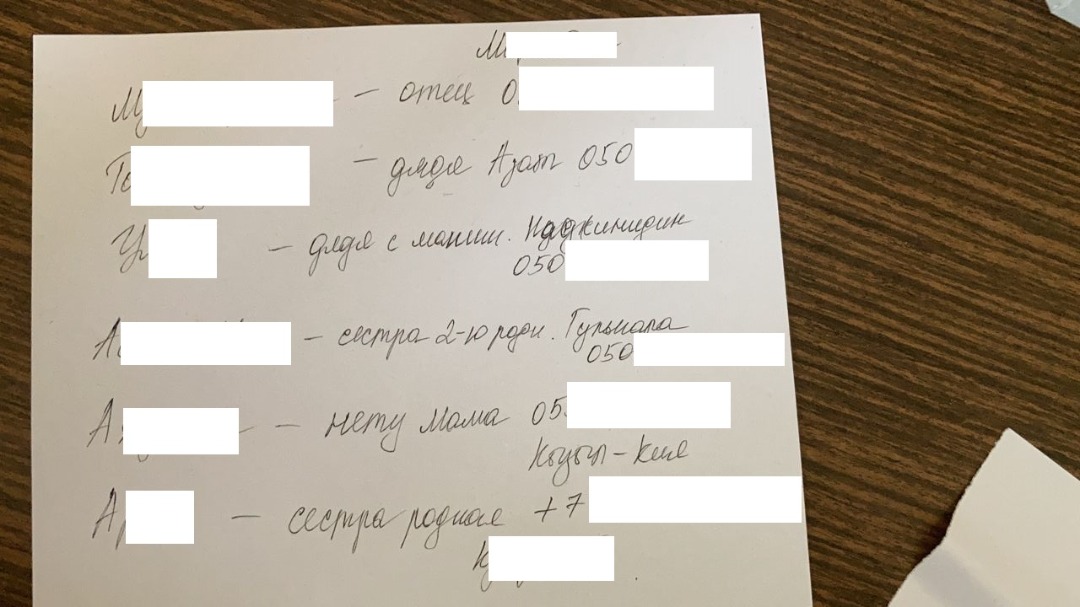 — отец
— дядя Азат 050
— дядя с мамин. Наджимидин
050
— сестра 2-юродн. Гульнара
050
— нету мама 05
Кызыл-Кия
— сестра родная +7